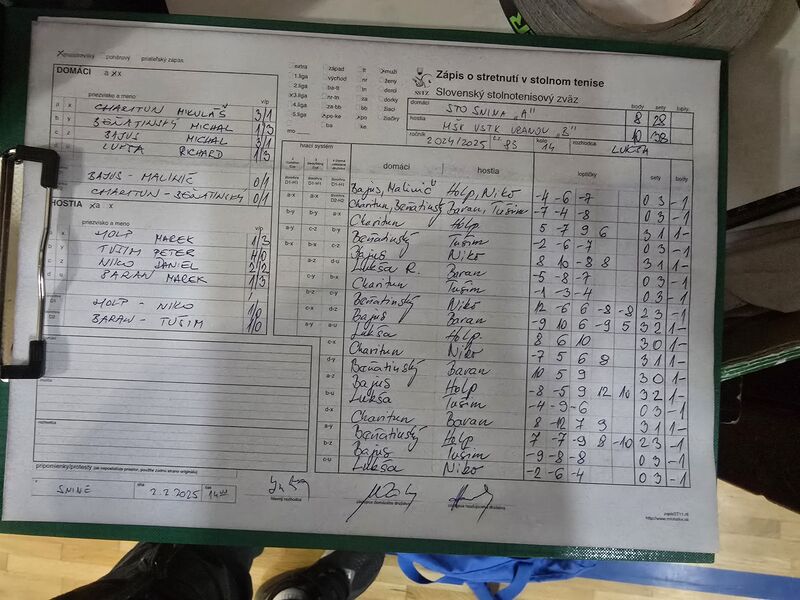 majstrovský pohárový priateľský zápas
DOMÁCI a x x
priezvisko a meno v/p
a x CHARITUN MIKULÁŠ 3/1
b y BEŇATINSKÝ MICHAL 1/3
c z BAJUS MICHAL 3/1
d u LUKŠA RICHARD 1/3
BAJUS - MALINIČ 0/1
CHARITUN - BEŇATINSKÝ 0/1
HOSTIA x a x
priezvisko a meno v/p
HOLP MAREK 1/3
TUŠIM PETER 4/0
NIKO DANIEL 2/2
BARAN MAREK 1/3
HOLP - NIKO 1/0
BARAN - TUŠIM 1/0
rozhodca
pripomienky/protesty (ak nepostačuje, použite zadnú stranu originálu)
SNINE dňa 2.2.2025 čas 14
hlavný rozhodca
extra západ tt muži
1.liga východ nr ženy
2.liga ba-tt tn dorci
3.liga nr-tn za dorky
4.liga za-bb bb žiaci
5.liga po-ke po žiačky
ba ke
SSTZ
Zápis o stretnutí v stolnom tenise
Slovenský stolnotenisový zväz
body sety lopty
domáci STO SNINA "A" 8 28
hostia MŠK VSTK VRANOV "B" 10 38
ročník 2024/2025 č.z. 83 kolo 14 rozhodca LUKŠA
hrací systém domáci hostia loptičky sety body
Bajus, Malinič Holp, Niko -4 -6 -7 0 3 -1
Charitun, Beňatinský Baran, Tušim -7 -4 -8 0 3 -1
Charitun Holp 5 -7 9 6 3 1 1-
Beňatinský Tušim -2 -6 -7 0 3 -1
Bajus Niko 8 10 -8 8 3 1 1-
Lukša R. Baran -5 -8 -7 0 3 -1
Charitun Tušim -1 -3 -4 0 3 -1
Beňatinský Niko 12 -6 6 -8 -8 2 3 -1
Bajus Baran -9 10 6 -9 5 3 2 1-
Lukša Holp 8 6 10 3 0 1-
Charitun Niko -7 5 6 8 3 1 1-
Beňatinský Baran 10 5 9 3 0 1-
Bajus Holp -8 -5 9 12 10 3 2 1-
Lukša Tušim -4 -9 -6 0 3 -1
Charitun Baran 8 -12 7 9 3 1 1-
Beňatinský Holp 7 -7 -9 8 -10 2 3 -1
Bajus Tušim -9 -8 -8 0 3 -1
Lukša Niko -2 -6 -4 0 3 -1
zástupca domáceho družstva
zástupca hosťujúceho družstva